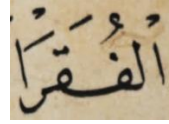 الْفُقَرَا